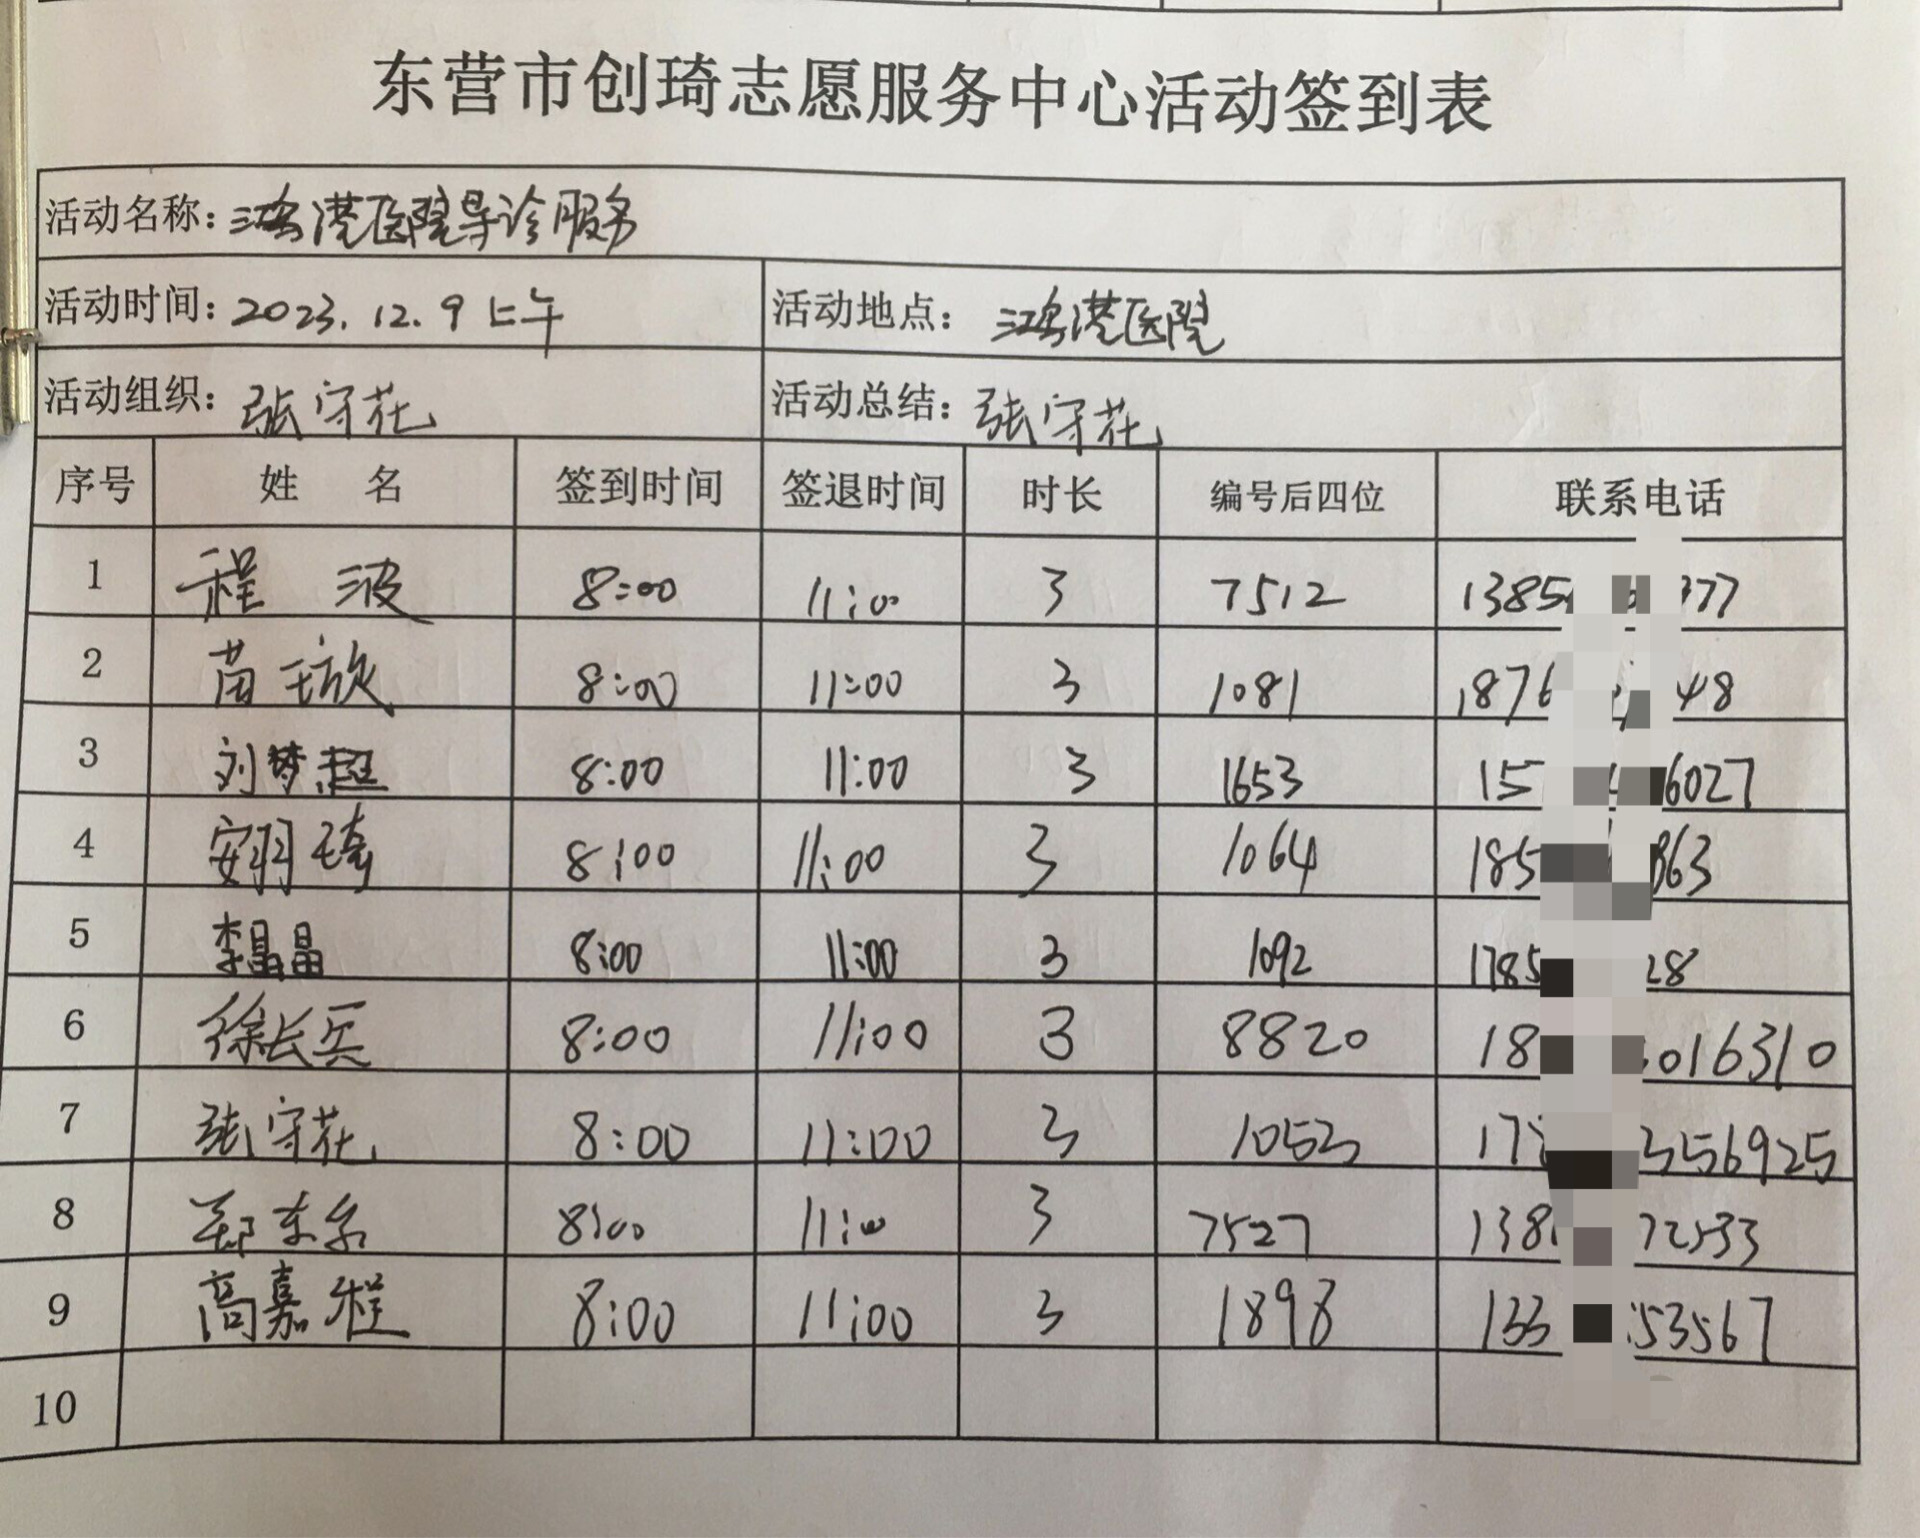 东营市创琦志愿服务中心活动签到表
活动名称：鸿港医院导诊服务
活动时间：2023.12.9上午 活动地点：鸿港医院
活动组织：张守花 活动总结：张守花
序号 姓名 签到时间 签退时间 时长 编号后四位 联系电话
1 程波 8:00 11:00 3 7512 1385 377
2 苗 8:00 11:00 3 1081 1876 48
3 刘梦超 8:00 11:00 3 1653 15 6027
4 安羽琦 8:00 11:00 3 1064 185 863
5 李晶晶 8:00 11:00 3 1092 1785 28
6 徐长兵 8:00 11:00 3 8820 18 016310
7 张守花 8:00 11:00 3 1053 17 3556925
8 郑东 8:00 11:00 3 7527 138 72533
9 高嘉程 8:00 11:00 3 1898 133 53567
10